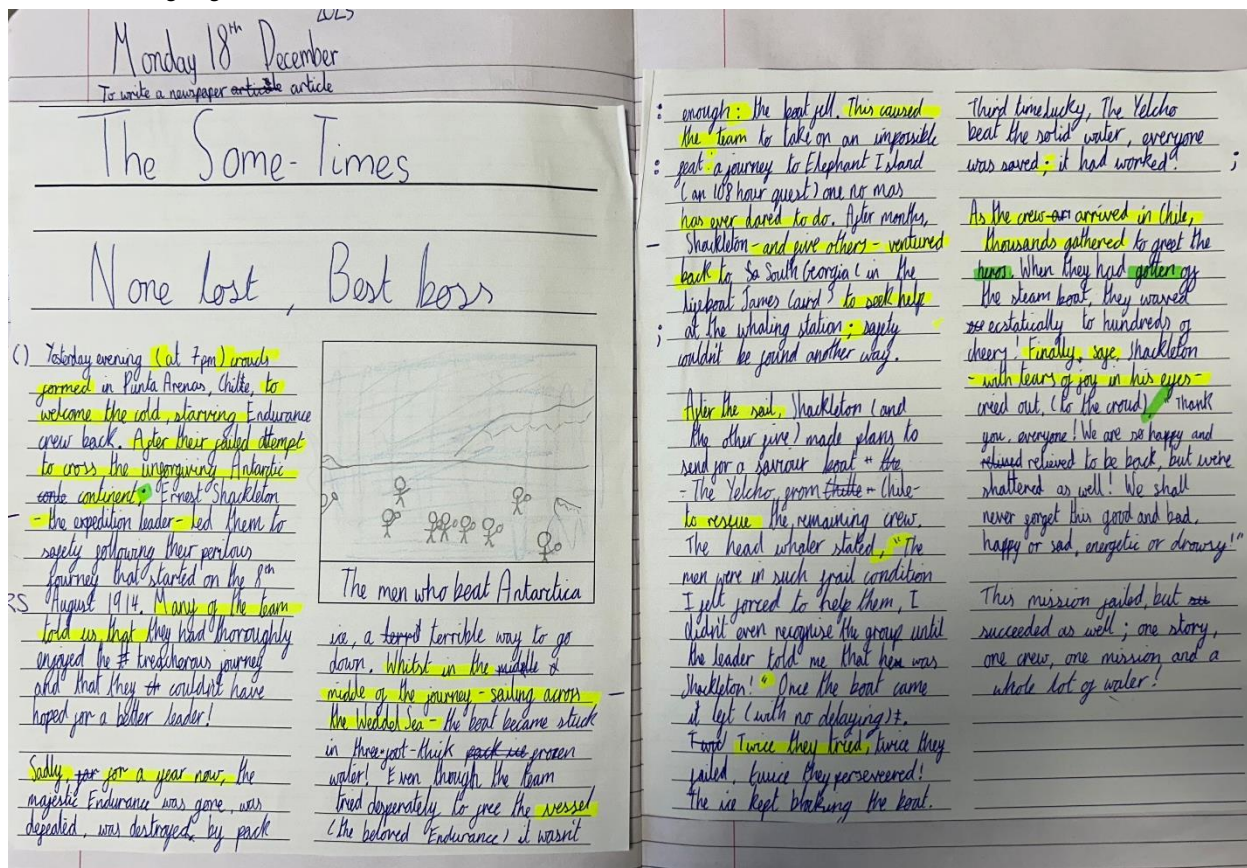 2023
Monday 18th December
To write a newspaper article
The Some-Times
None lost, Best boss
() Yesterday evening (at 7pm) crowds
formed in Punta Arenas, Chilte, to
welcome the cold, starving Endurance
crew back. After their failed attempt
to cross the unforgiving Antarctic
continent, Ernest Shackleton
- - the expedition leader - led them to
safety following their perilous
journey that started on the 8th
RS August 1914. Many of the team
told us that they had thoroughly
enjoyed the treacherous journey
and that they couldn't have
hoped for a better leader!
Sadly, for a year now, the
majestic Endurance was gone, was
defeated, was destroyed, by pack
The men who beat Antartica
ice, a terrible way to go
down. Whilst in the
middle of the journey - sailing across -
the Weddel Sea - the boat became stuck
in three-foot-thick frozen
water! Even though the team
tried desperately to free the vessel
(the beloved Endurance) it wasn't
: enough: the boat fell. This caused
the team to take on an impossible
: feat: a journey to Elephant Island
(an 108 hour quest) one no mas
has ever dared to do. After months,
- Shackleton - and five others - ventured
back to South Georgia (in the
lifeboat James Caird) to seek help
; at the whaling station; safety
couldn't be found another way.
After the sail, Shackleton (and
the other five) made plans to
send for a saviour boat
- The Yelcho, from Chile -
to rescue the remaining crew.
The head whaler stated, "The
men were in such frail condition
I felt forced to help them, I
didn't even recognise the group until
the leader told me that he was
Shackleton!" Once the boat came
it left (with no delaying).
Twice they tried, twice they
failed, twice they persevered!
The ice kept blocking the boat.
Third time lucky, The Yelcho
beat the solid water, everyone
was saved; it had worked! ;
As the crew arrived in Chile,
thousands gathered to greet the
heros. When they had gotten off
the steam boat, they waved
ecstatically to hundreds of
cheery! Finally, safe, Shackleton
- with tears of joy in his eyes -
cried out, (to the croud) "Thank
you, everyone! We are so happy and
relieved to be back, but we're
shattered as well! We shall
never forget this good and bad,
happy or sad, energetic or drowsy!"
This mission failed, but
succeeded as well; one story,
one crew, one mission and a
whole lot of water!